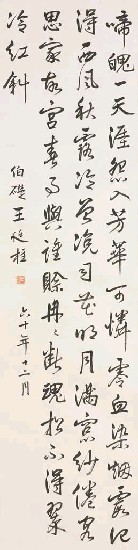 啼魄一天涯怨入芳華可憐零血染烟霞記
得西風秋露冷曾浼司花明月滿窗紗倦客
思家故宮春事與誰賒冉冉斷魂招不得翠
冷紅斜
伯礎王廷柱
六十年十二月